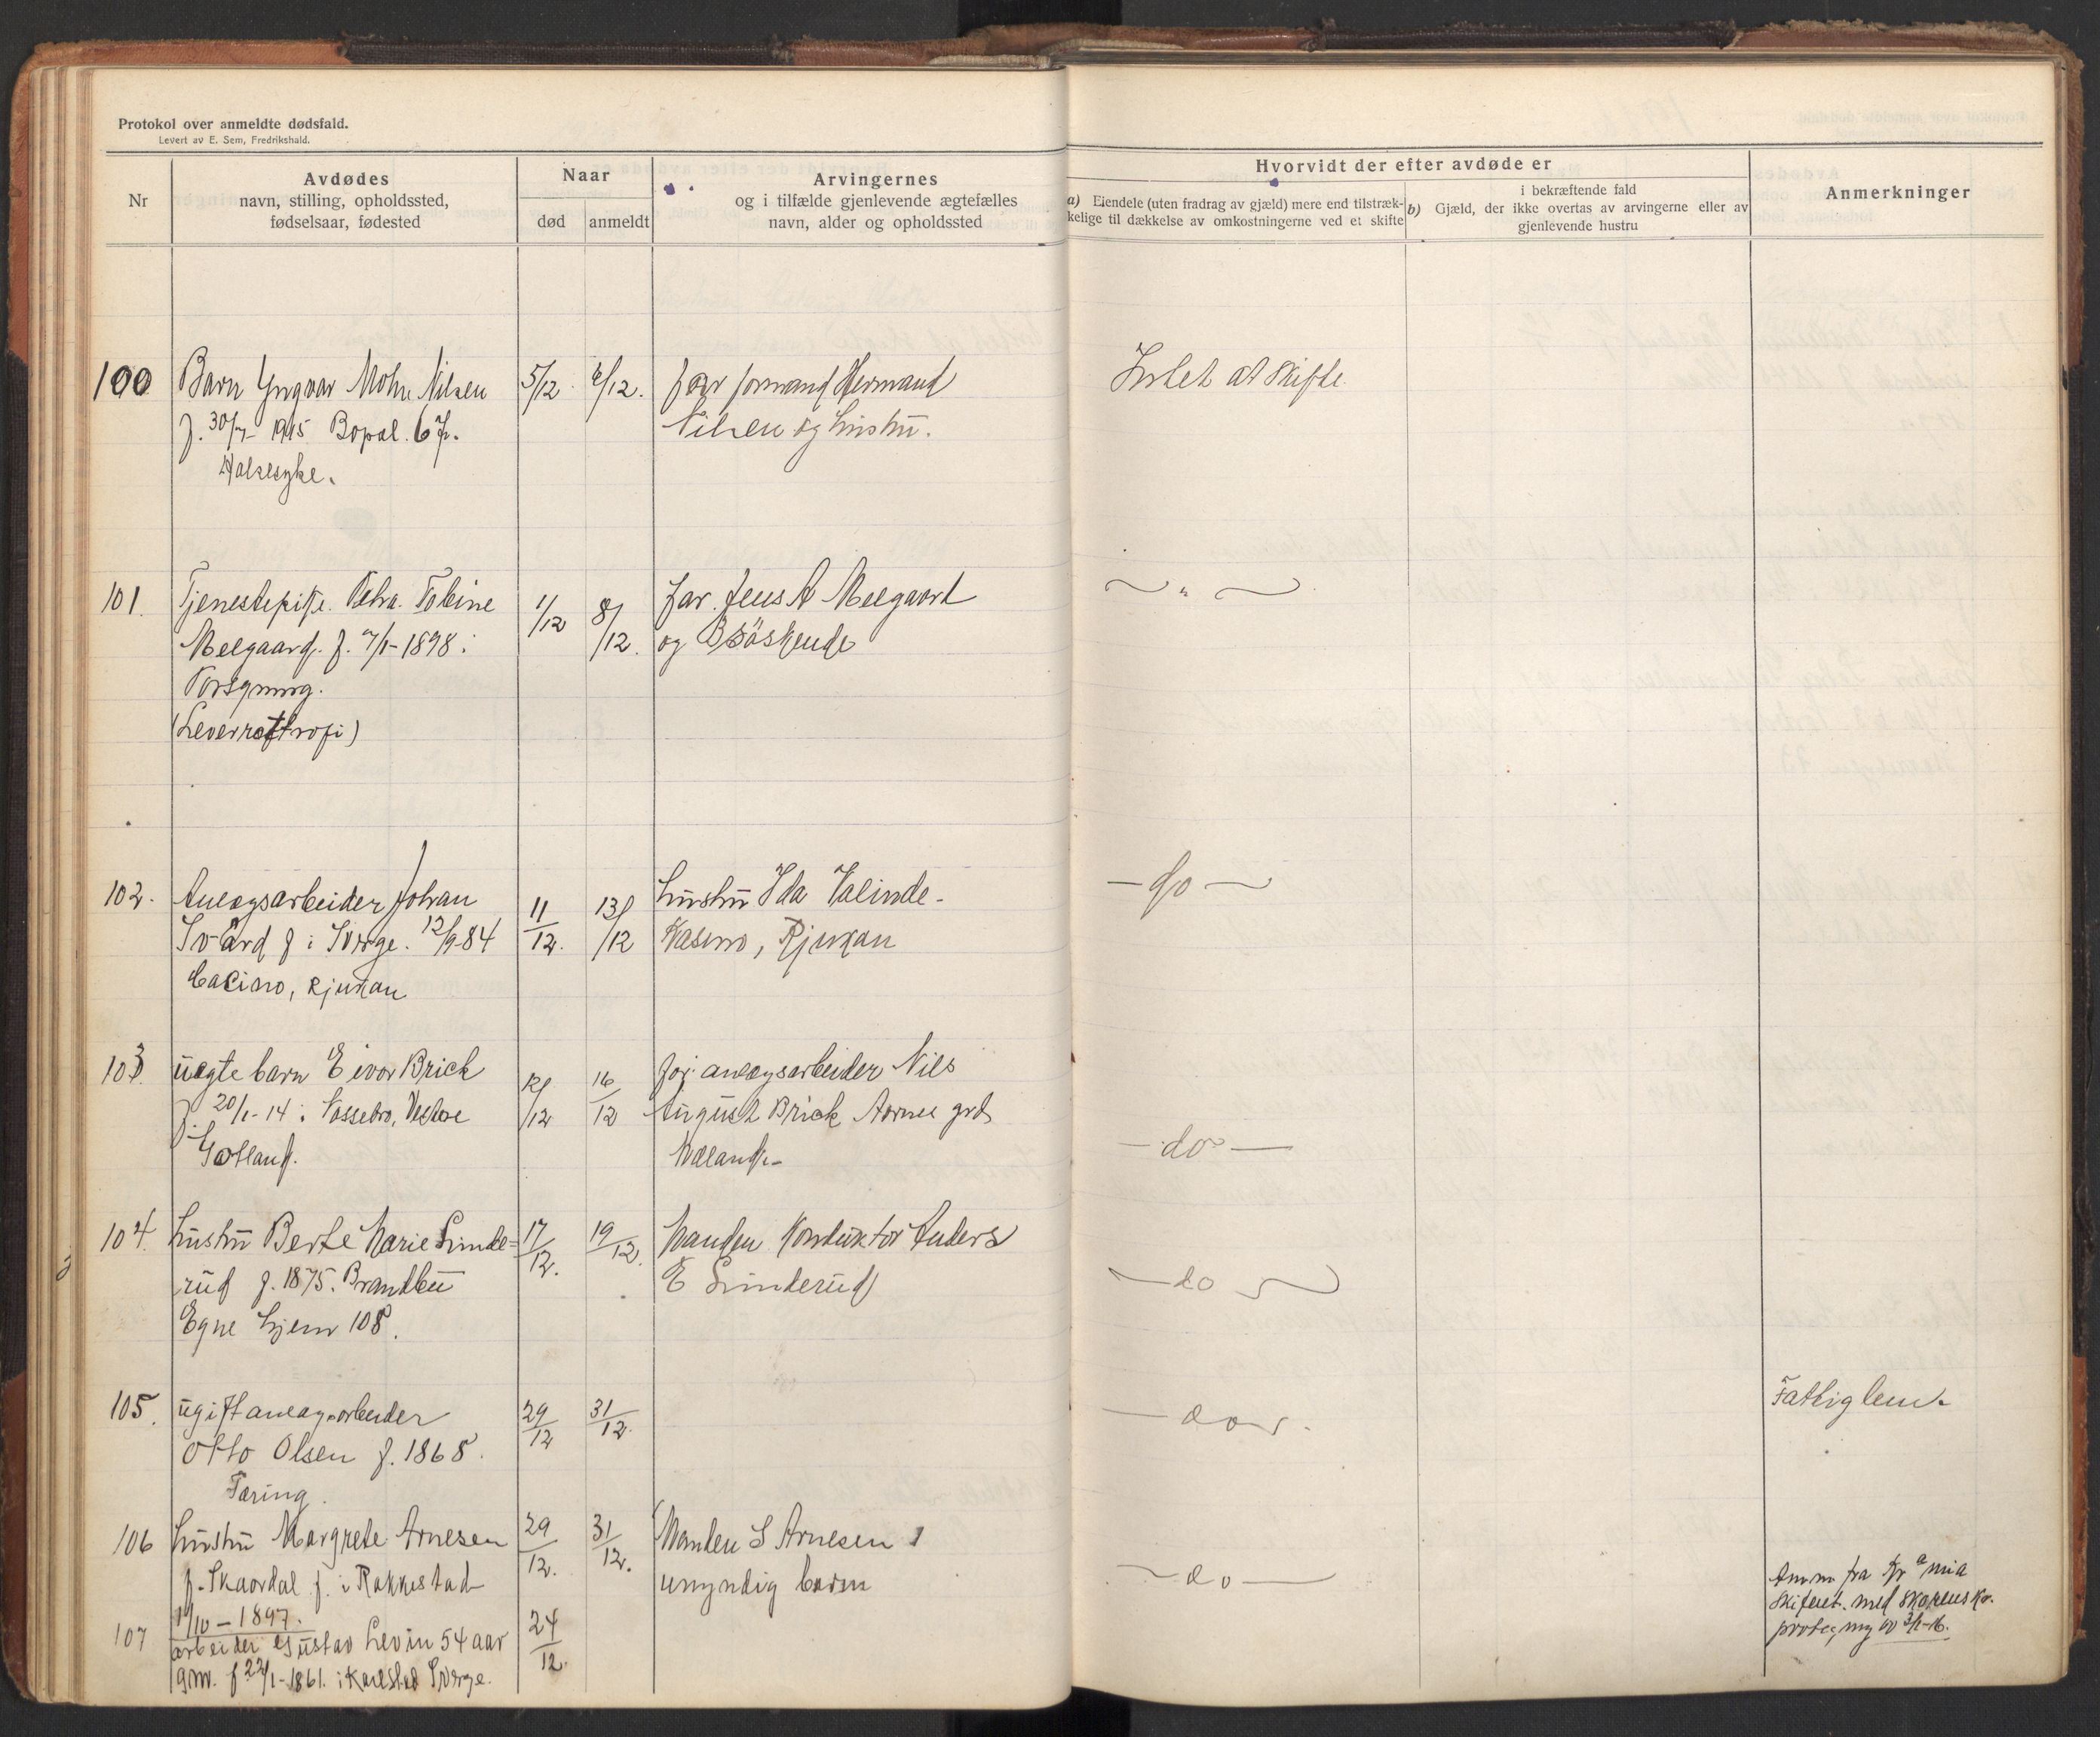 Protokol over anmeldte dødsfald.
Levert av E. Sem, Fredrikshald.
Nr
Avdødes
navn, stilling, opholdssted,
fødselsaar, fødested
Naar
død
anmeldt
Arvingernes
og i tilfælde gjenlevende ægtefælles
navn, alder og opholdssted
Hvorvidt der efter avdøde er
a) Eiendele (uten fradrag av gjæld) mere end tilstræk-
kelige til dækkelse av omkostningerne ved et skifte
i bekræftende fald
b) Gjæld, der ikke overtas av arvingerne eller av
gjenlevende hustru
Anmerkninger
100 Barn Yngvar Mohn Nilsen 5/12 6/12. far formand Hermand Intet at skifte.
f. 30/7 1915 Bopæl. 67. Nilsen og hustru.
Halsesyke.
101. Tjenestepike. Petra Tobine 1/12 8/12. far. Jens A Melgaard - " -
Melgaard. f. 7/1-1898. og Søskende
Porsgrund.
(Leverratrofi)
102. Anlægsarbeider Johan 11/12. 13/12 hustru Ida Valinde - - do -
Svärd f i Sverge. 12/9-84 Kasino, Rjukan
Casino, Rjukan
103. uegte barn Eivor Brick 12/12 16/12 for. anlægsarbeider Nils
f. 20/1-14 i Nossebro, Vestre August Brick Aarnes grd - do -
Gotland. Mæland. -
104. hustru Berte Marie Linde= 17/12. 19/12. Manden Konduktør Anders
rud f. 1875. Brandbu E Linderud - do -
Egne hjem 108.
105. ugift anlægsarbeider 29/12 31/12. - do - Fattiglem.
Otto Olsen f. 1868.
Taring.
106 hustru Margrete Arnesen 29/12. 31/12. Manden S Arnesen 1
f. Skaardal f. i Rakkestad umyndig barn - do - Anm. fra Kr a nia
/10 - 1897. skifteret. med
107 arbeider Gustav Levin 54 aar 24/12. 3/1-16.
gm. f 22/1-1861. i Karlstad Sverge.